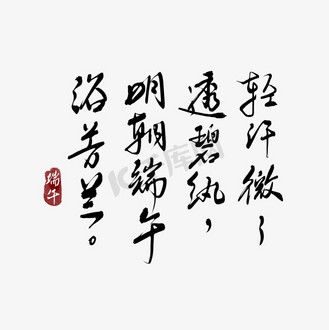 轻汗微微
透碧纨，
明朝端午
浴芳兰。
端午